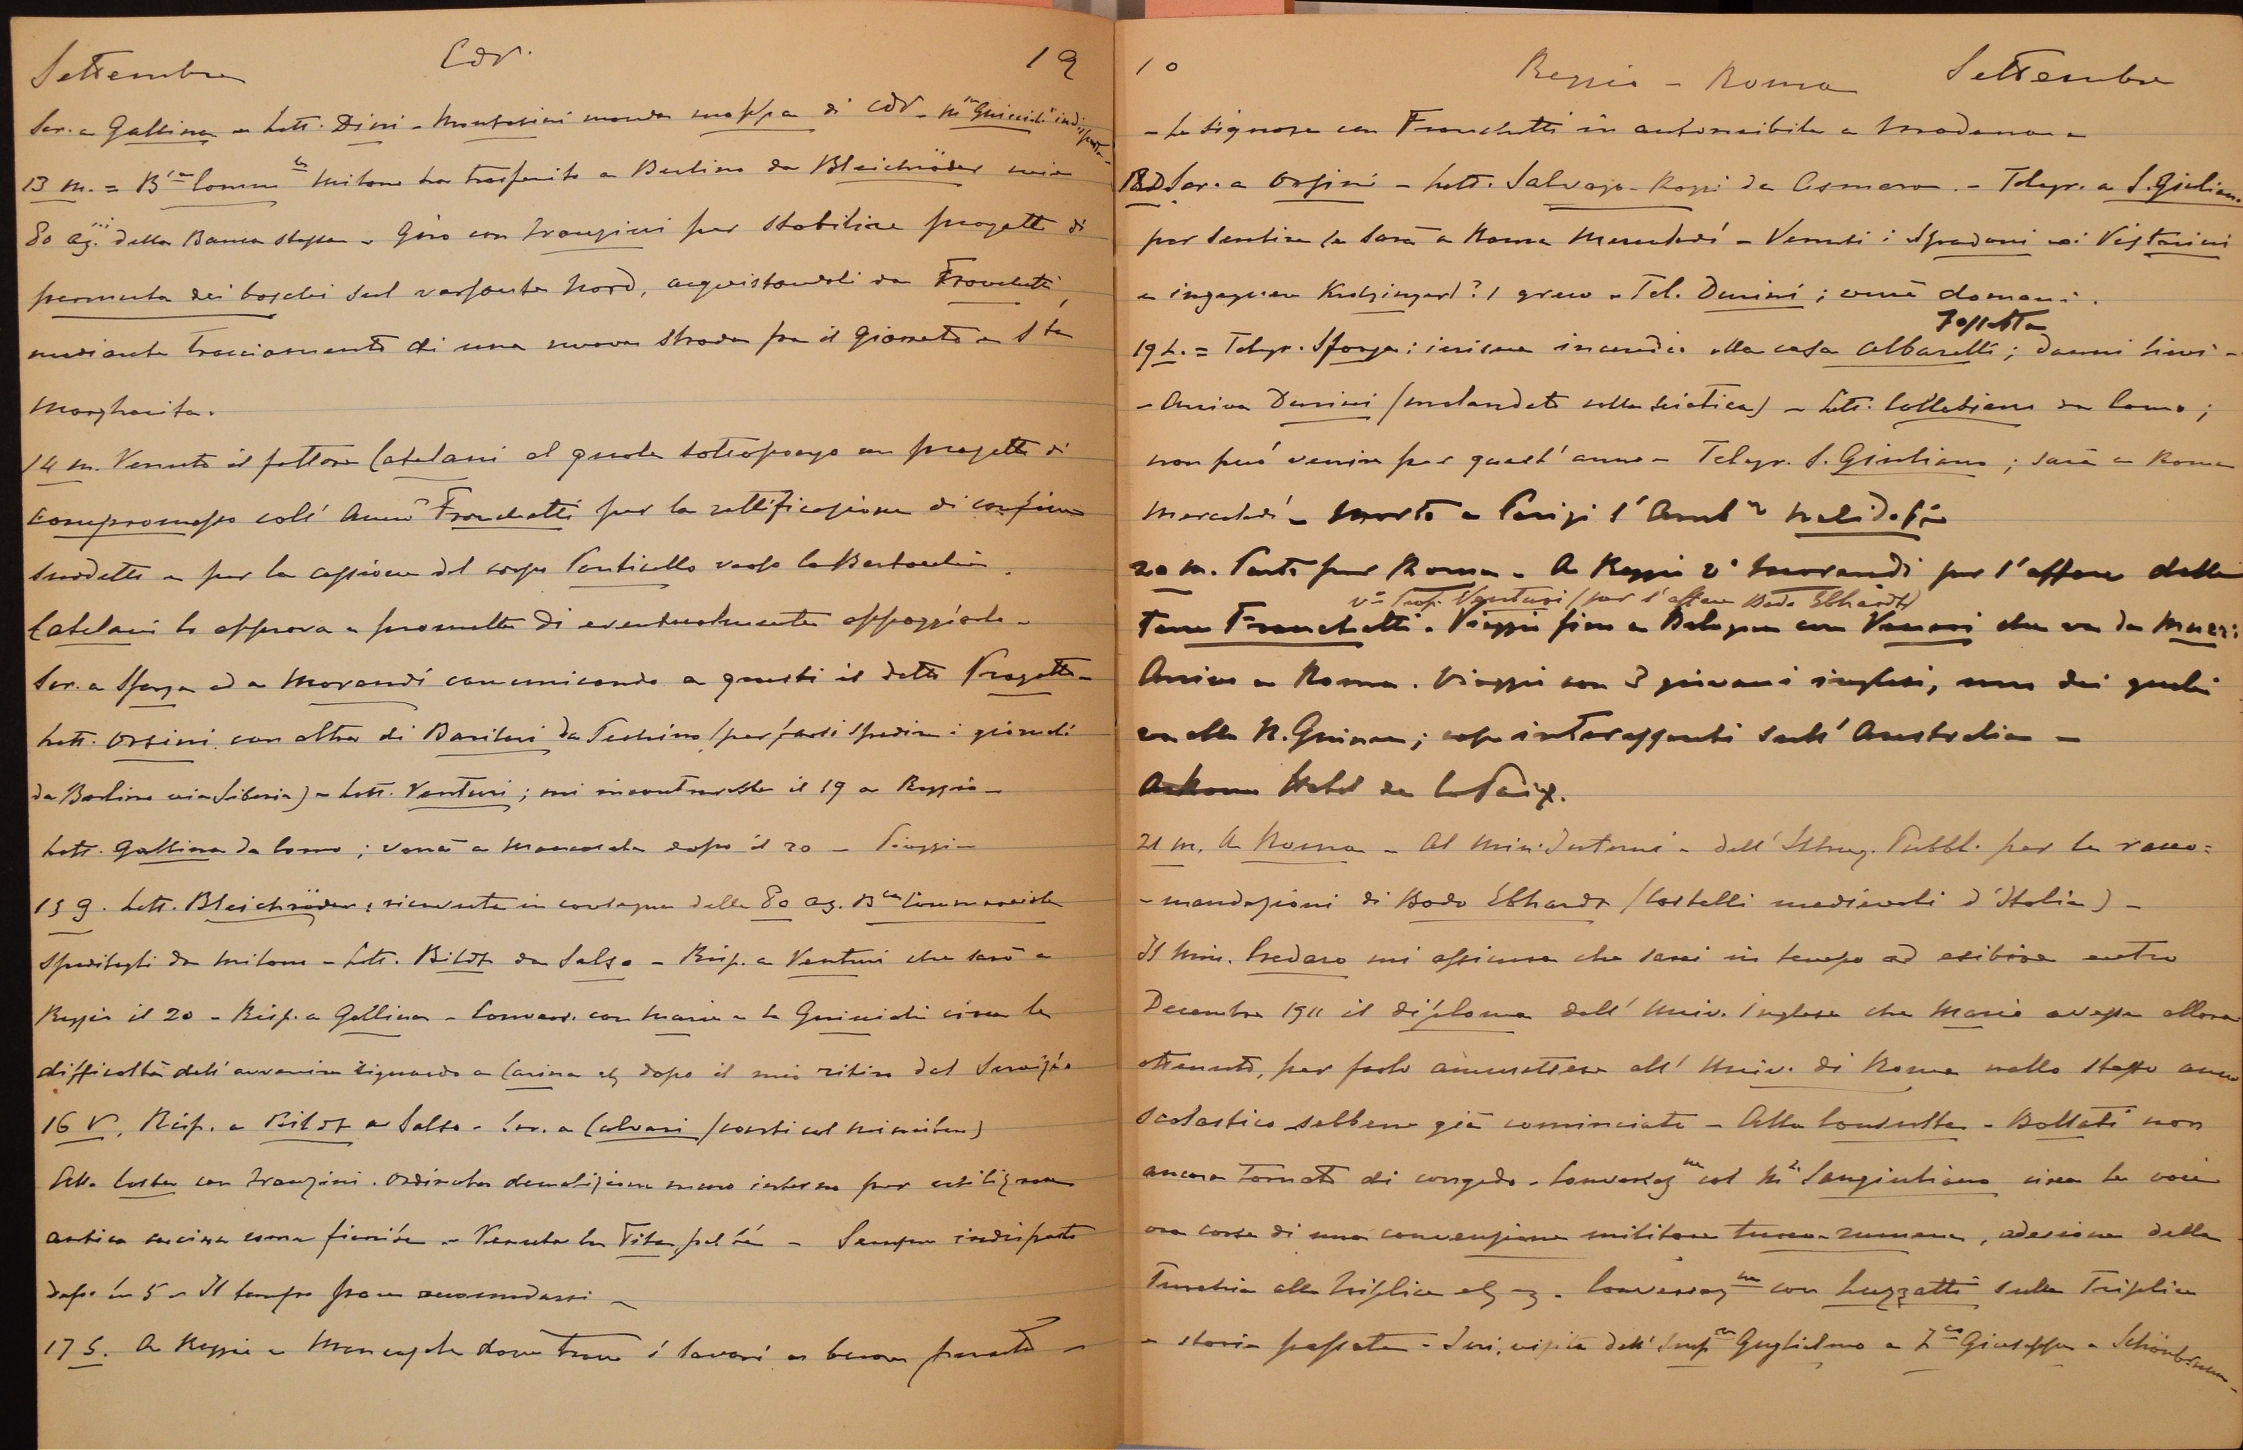 Settembre CdV. 19
Scr. a Gallina - Lett. Dini - Montasini manda mappa di CdV - Mse Guiccioli indisposta -
13 M. = Bca Commle Milano ha trasferito a Berlino da Bleichröder mie
80 azni della Banca stessa - Giro con Franzini per stabilire progetto di
permuta dei boschi sul versante Nord, acquistandoli da Franchetti,
mediante tracciamento di una nuova strada fra il Giarretto e Sta
Margherita.
14 M. Venuto il fattore Catelani al quale sottopongo un progetto di
compromesso coll' Ammne Franchetti per la rettificazione di confine
suddetto e per la cessione del corpo Ponticello verso la
Catelani lo approva e promette di eventualmente appoggiarlo -
Scr. a Sforza ed a Morandi comunicando a questi il detto Progetto -
Lett. Orsini con altra di Barilari da Pechino (per farsi spedire i giornali
da Berlino via Siberia) - Lett. Venturi; mi incontrerebbe il 19 a Reggio -
Lett. Gallina da Como; verrà a dopo il 20 - Pioggia
15 G. Lett. Bleichröder, ricevuta in consegna delle 80 az. Bca Commerciale
speditegli da Milano - Lett. Bildt da Salso - Risp. a Venturi che sarò a
Reggio il 20 - Risp. a Gallina - Convers. con Mario e la Guiccioli circa le
difficoltà dell' avvenire riguardo a Carina etz dopo il mio ritiro dal Servizio
16 V. Risp. a Bildt a Salso - Scr. a Calvari
Alla Costa con Franzini. Ordinata demolizione muro interno per utilizzare
antica cucina come fienile - Venuta la Tita pel té - Sempre indisposto
dopo le 5 - Il tempo pare accomodarsi -
17 S. A Reggio e dove trovo i lavori a buon punto -
10 Reggio - Roma Settembre
- Le Signore con Franchetti in automobile a Modena -
18 D Scr. a Orsini - Lett. Salvago-Raggi da Asmara. - Telegr. a S. Giuliano
per sentire se sarà a Roma Mercoledì - Venuti i Spadoni coi Vistarini
e ingegnere - Tel. Durini; verrà domani.
Fossetta
19 L. = Telegr. Sforza: iersera incendio alla casa Albarelli; danni lievi -
- Arriva Durini (malandato colla sciatica) - Lett. Collobiano da Como;
non può venire per quest' anno - Telegr. S. Giuliano; sarà a Roma
Mercoledì - Morto a Parigi l' Ambre Nelidoff -
20 M. Parto per Roma - A Reggio v° Morandi per l' affare delle
v° Prof. Venturi (per l' affare Bodo Ebhardt)
Terre Franchetti - Viaggio fino a Bologna con che va da
Arrivo a Roma. Viaggio con 3 giovani inglesi, uno dei quali
va alla N. Guinea; cose interessanti sull' Australia -
A Roma Hotel de la Paix.
21 M. A Roma - Al Min. Interni - dell' Istruz. Pubbl. per le racco=
- mandazioni di Bodo Ebhardt (Castelli medievali d' Italia) -
Il Min. Credaro mi assicura che sarei in tempo ad esibire entro
Decembre 1911 il diploma dell' Univ. Inglese che Mario avesse allora
ottenuto, per farlo ammettere all' Univ. di Roma nello stesso anno
scolastico sebbene già cominciato - Alla Consulta - Bollati non
ancora tornato di congedo - Conversazne col Mse Sangiuliano circa le voci
ora corse di una convenzione militare turco-rumena, adesione della
Turchia alla Triplice etz etz. Conversazne con Luzzatti sulla Triplice
e storia passata - Ieri, visita dell' Impre Guglielmo a Fco Giuseppe a Schönbrunn -